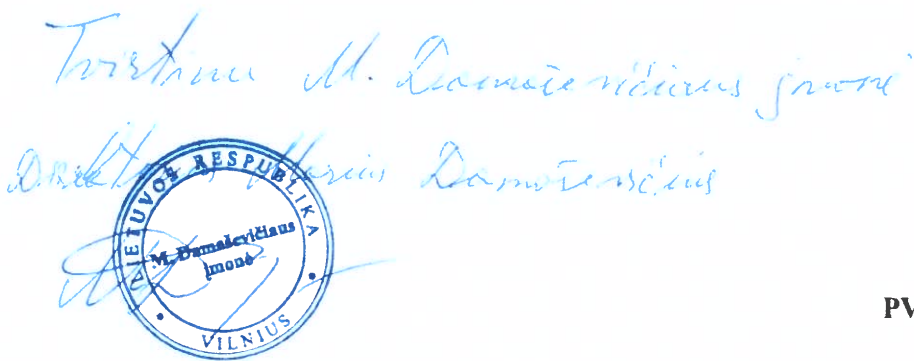 Tvirtinu M. Damaševičiaus įmonė
Direktorius Marius Damaševičius
LIETUVOS RESPUBLIKA
M. Damaševičiaus
įmonė
VILNIUS
PV